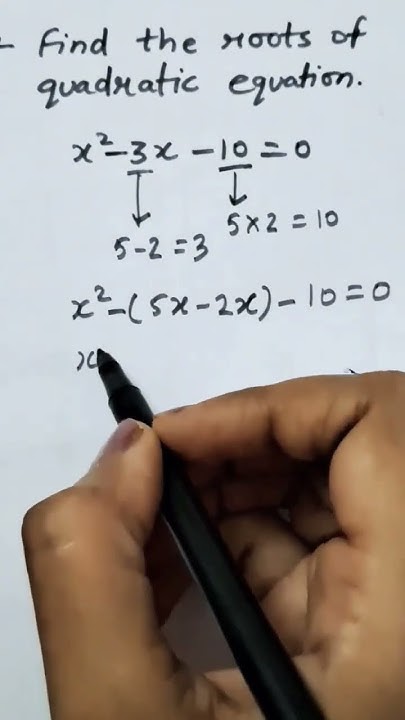 Find the roots of
quadratic equation.
x²-3x-10=0
5×2=10
5-2=3
x²-(5x-2x)-10=0
x